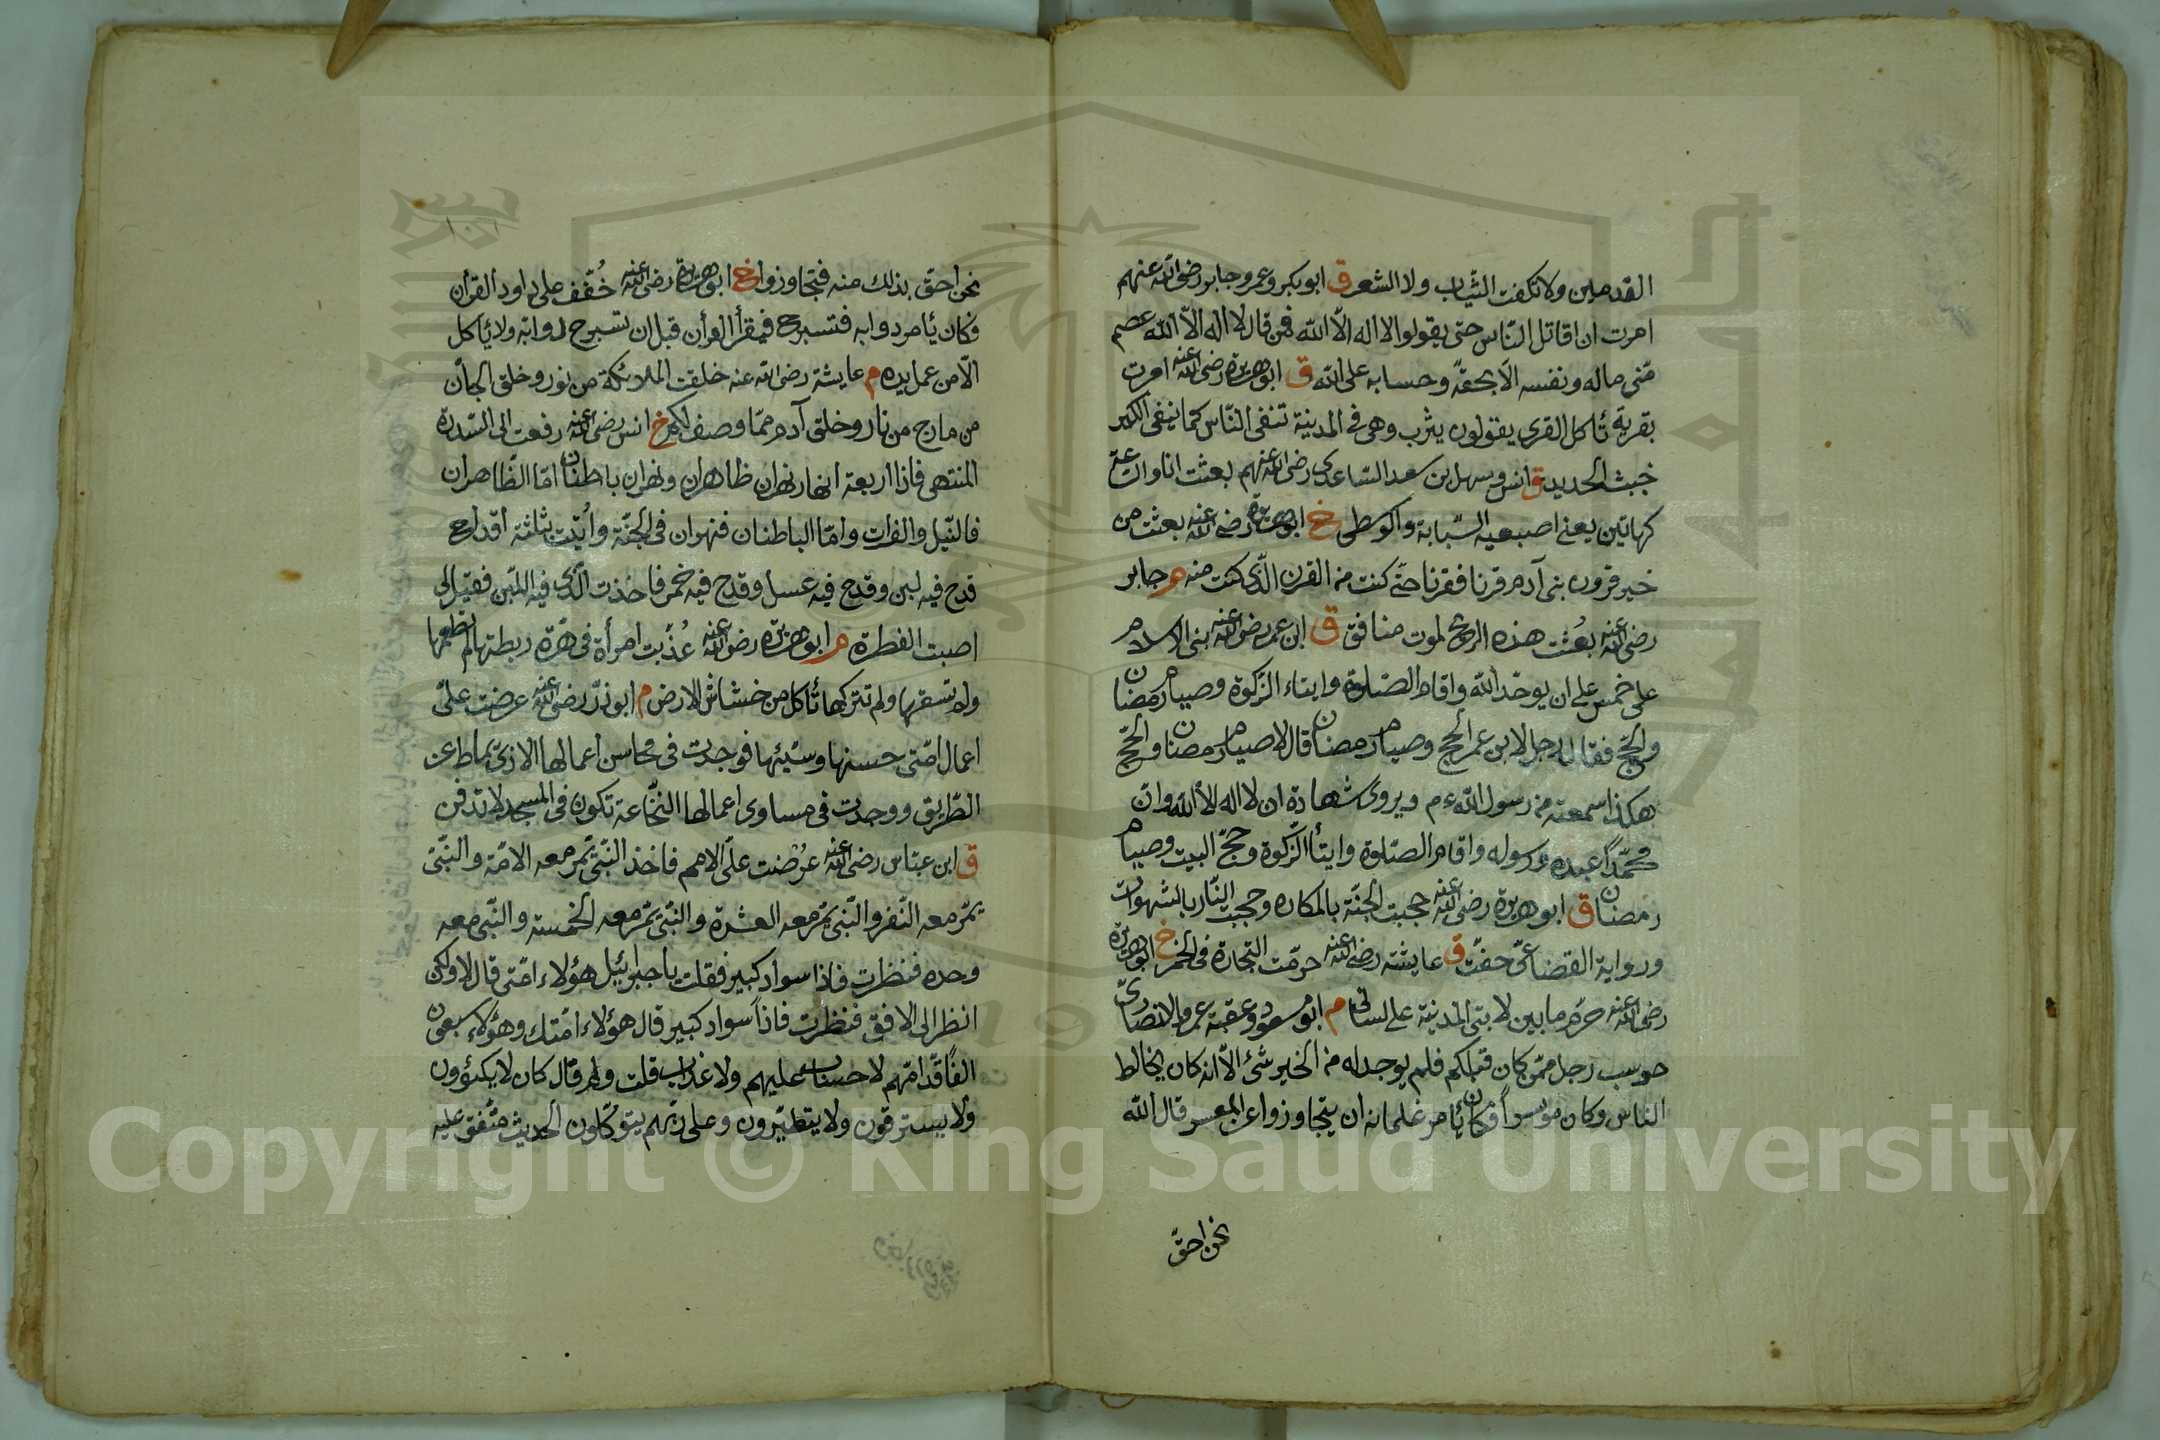 القدمين ولا نكفت الثياب ولا الشعر ق ابو بكر وعمر وجابر رضى الله عنهم
امرت ان اقاتل الناس حتى يقولوا لا اله الا الله فمن قال لا اله الا الله عصم
منى ماله ونفسه الا بحقه وحسابه على الله ق ابو هريرة رضى الله عنه امرت
بقرية تأكل القرى يقولون يثرب وهى فى المدينة تنفى الناس كما ينفى الكير
خبث الحديد ق انس وسهل بن سعد الساعدى رضى الله عنهم بعثت انا والساعة
كهاتين يعنى اصبعيه السبابة والوسطى خ ابو هريرة رضى الله عنه بعثت من
خير قرون بنى آدم قرنا فقرنا حتى كنت من القرن الذى كنت منه م جابر
رضى الله عنه بعثت هذه الريح لموت منافق ق ابن عمر رضى الله عنه بنى الاسلام
على خمس على ان يوحد الله واقام الصلوة وايتاء الزكوة وصيام رمضان
والحج فقال رجل لابن عمر الحج وصيام رمضان قال لا صيام رمضان والحج
هكذا سمعته من رسول الله م ويروى شهادة ان لا اله الا الله وان
محمدا عبده ورسوله واقام الصلوة وايتأ الزكوة وحج البيت وصيام
رمضان ق ابو هريرة رضى الله عنه حجبت الجنة بالمكاره وحجبت النار بالشهوات
ورواية القضاعى حفت ق عايشة رضى الله عنه حرمت التجارة فى الخمر خ ابو هريرة
رضى الله عنه حرم ما بين لابتى المدينة على لسانى م ابو مسعود وعقبة عمرو الانصارى
حوسب رجل ممن كان قبلكم فلم يوجد له من الخير شئ الا انه كان يخالط
الناس وكان موسرا فكان يأمر غلمانه ان يتجاوزوا عن المعسر قال الله
نحن احق
١٠١
نحن احق بذلك منه فتجاوزوا خ ابو هريرة رضى الله عنه خفف على داود القرأن
فكان يأمر دوابه فتسرج فيقرأ القرأن قبل ان تسرج دوابه ولا يأكل
الا من عمل يده م عايشة رضى الله عنه خلقت الملائكة من نور وخلق الجان
من مارج من نار وخلق آدم مما وصف لكم خ انس رضى الله عنه رفعت الى السدرة
المنتهى فاذا اربعة انهار نهران ظاهران ونهران باطنان اما الظاهران
فالنيل والفرات واما الباطنان فنهران فى الجنة وأتيت بثلثة اقداح
قدح فيه لبن وقدح فيه عسل وقدح فيه خمر فاخذت الذى فيه اللبن فقيل لى
اصبت الفطرة م ابو هريرة رضى الله عنه عذبت امرأة فى هرة ربطتها لم تطعمها
ولم تسقها ولم تتركها تأكل من خشاش الارض م ابو ذر رضى الله عنه عرضت على
اعمال امتى حسنها وسيئها فوجدت فى محاسن اعمالها الاذى يماط عن
الطريق ووجدت فى مساوى اعمالها النخاعة تكون فى المسجد لا تدفن
ق ابن عباس رضى الله عنه عرضت على الامم فاخذ النبى يمر معه الامة والنبى
يمر معه النفر والنبى يمر معه العشرة والنبى يمر معه الخمسة والنبى معه
وحده فنظرت فاذا سواد كبير فقلت يا جبرائيل هؤلاء امتى قال لا ولكن
انظر الى الافق فنظرت فاذا سواد كبير قال هؤلاء امتك وهؤلاء سبعون
الفا قدامهم لا حساب عليهم ولا عذاب قلت ولم قال كان لا يكتوون
ولا يسترقون ولا يتطيرون وعلى ربهم يتوكلون الحديث متفق عليه
Copyright © King Saud University